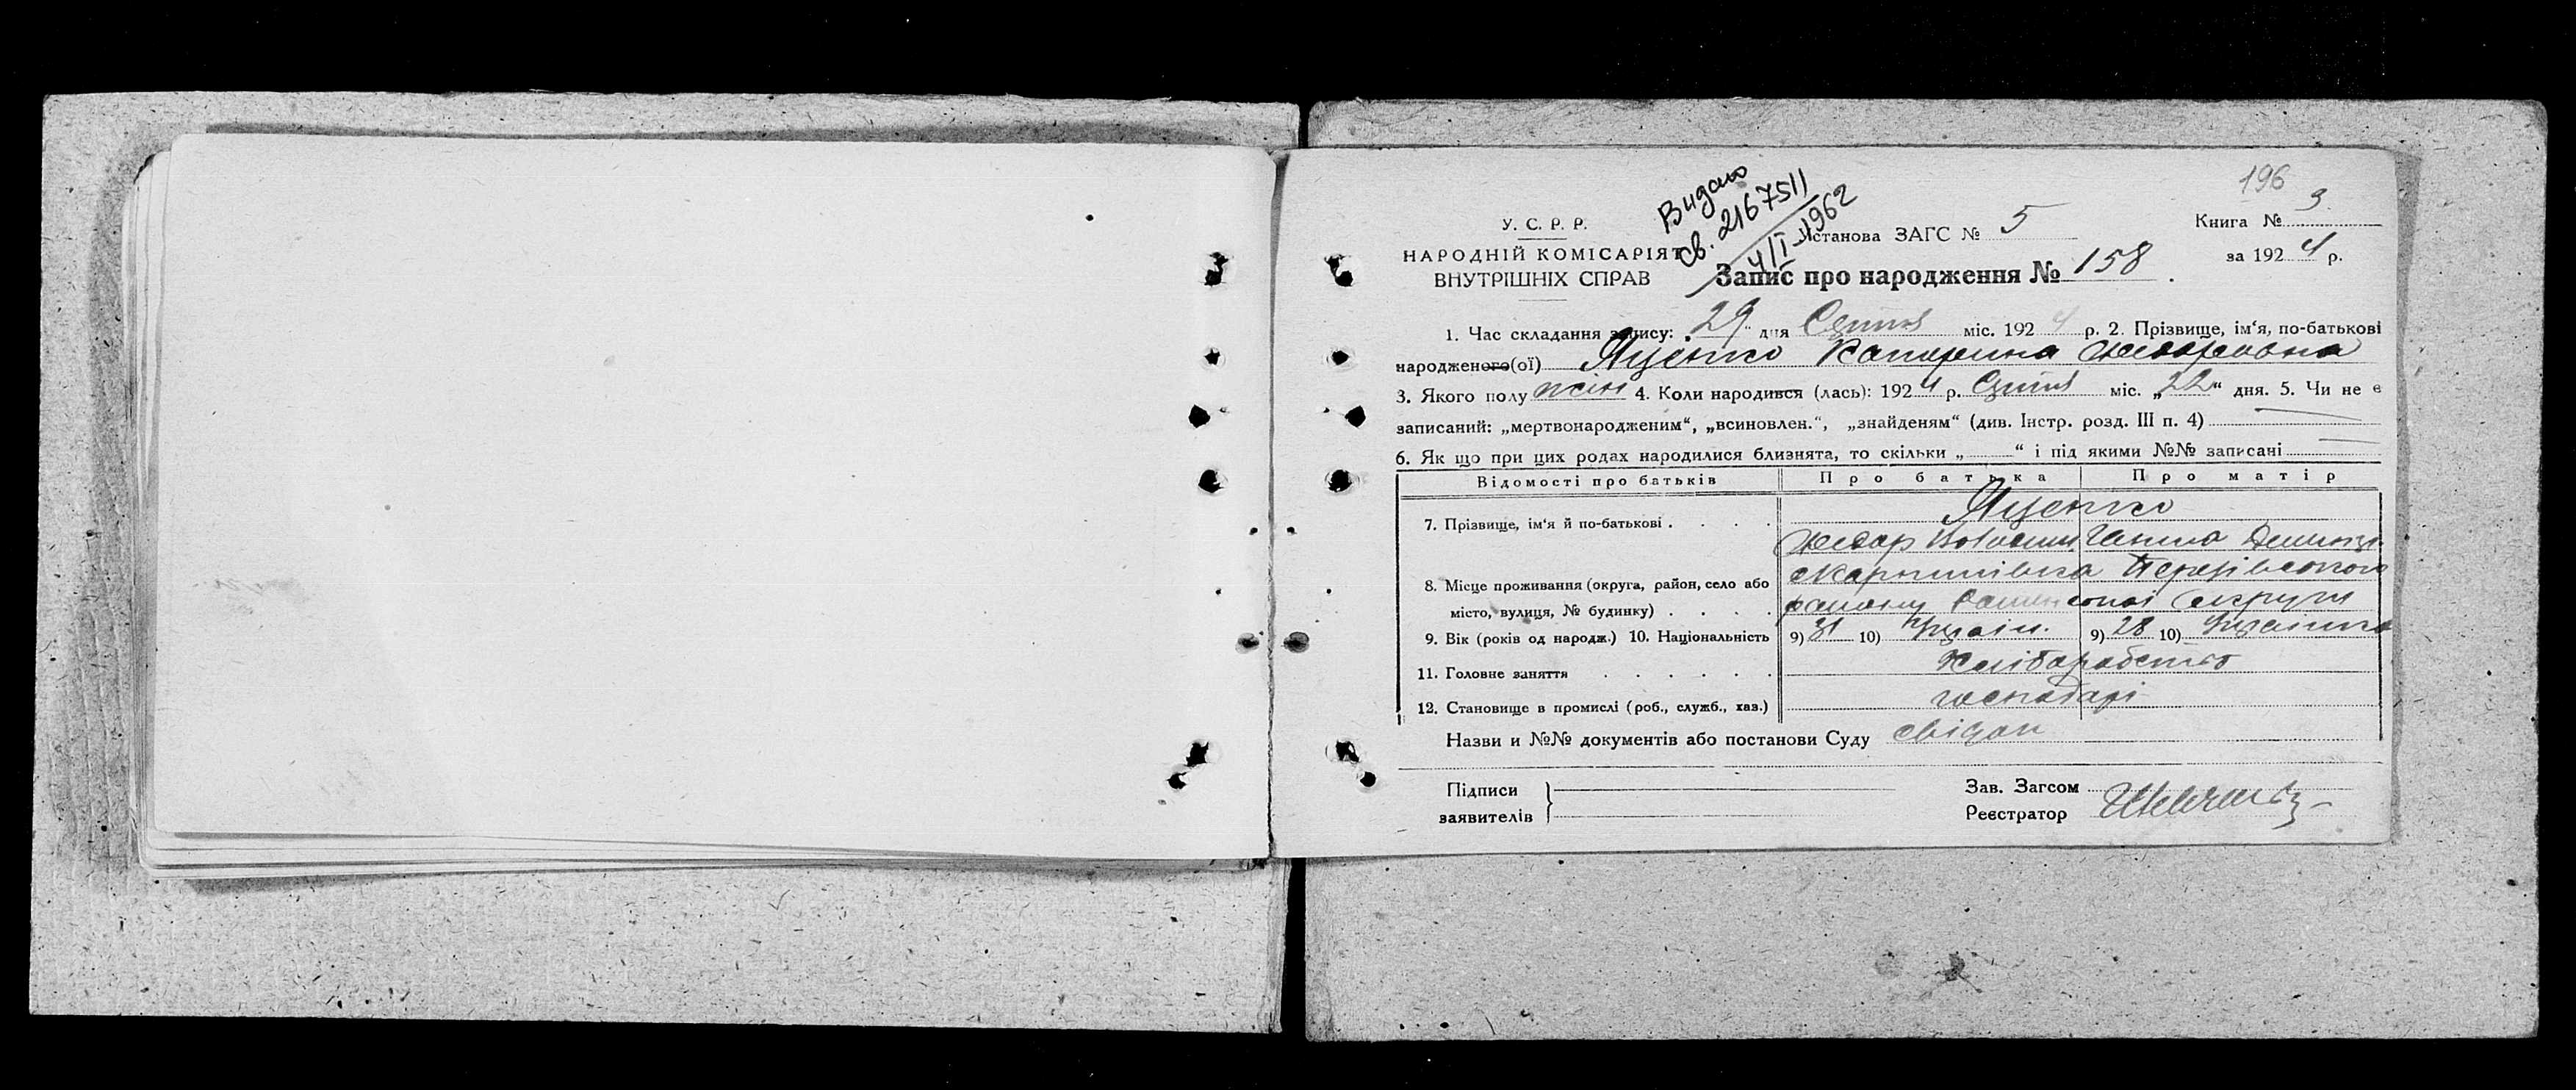 196
Видано
Св. 2167511
4/I-1962
У. С. Р. Р.
НАРОДНІЙ КОМІСАРІЯТ
ВНУТРІШНІХ СПРАВ
Установа ЗАГС № 5
Книга № 3
за 1924 р.
Запис про народження № 158.
1. Час складання запису: „29“ дня Січня міс. 1924 р. 2. Прізвище, ім'я, по-батькові
народженого(ої) Яценко Катерина Федоровна
3. Якого полу жін 4. Коли народився (лась): 1924 р. Січня міс. „22“ дня. 5. Чи не є
записаний: „мертвонародженим“, „всиновлен.“, „знайденям“ (див. Інстр. розд. III п. 4)
6. Як що при цих родах народилися близнята, то скільки „ “ і під якими №№ записані
Відомості про батьків Про батька Про матір
7. Прізвище, ім'я й по-батькові Яценко
Федор
8. Місце проживання (округа, район, село або
місто, вулиця, № будинку) району округи
9. Вік (років од народж.) 10. Національність 9) 31 10) Україн. 9) 28 10) Українка
11. Головне заняття Хліборобство
12. Становище в промислі (роб., служб., хаз.) господарі
Назви и №№ документів або постанови Суду
Підписи
заявителів
Зав. Загсом
Реєстратор